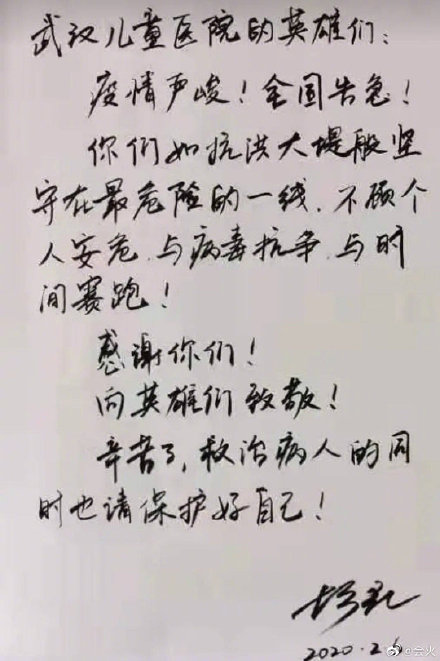 武汉儿童医院的英雄们：
疫情严峻！全国告急！
你们如抗洪大堤般坚
守在最危险的一线，不顾个
人安危，与病毒抗争，与时
间赛跑！
感谢你们！
向英雄们致敬！
辛苦了，救治病人的同
时也请保护好自己！
2020.2.6
@会火